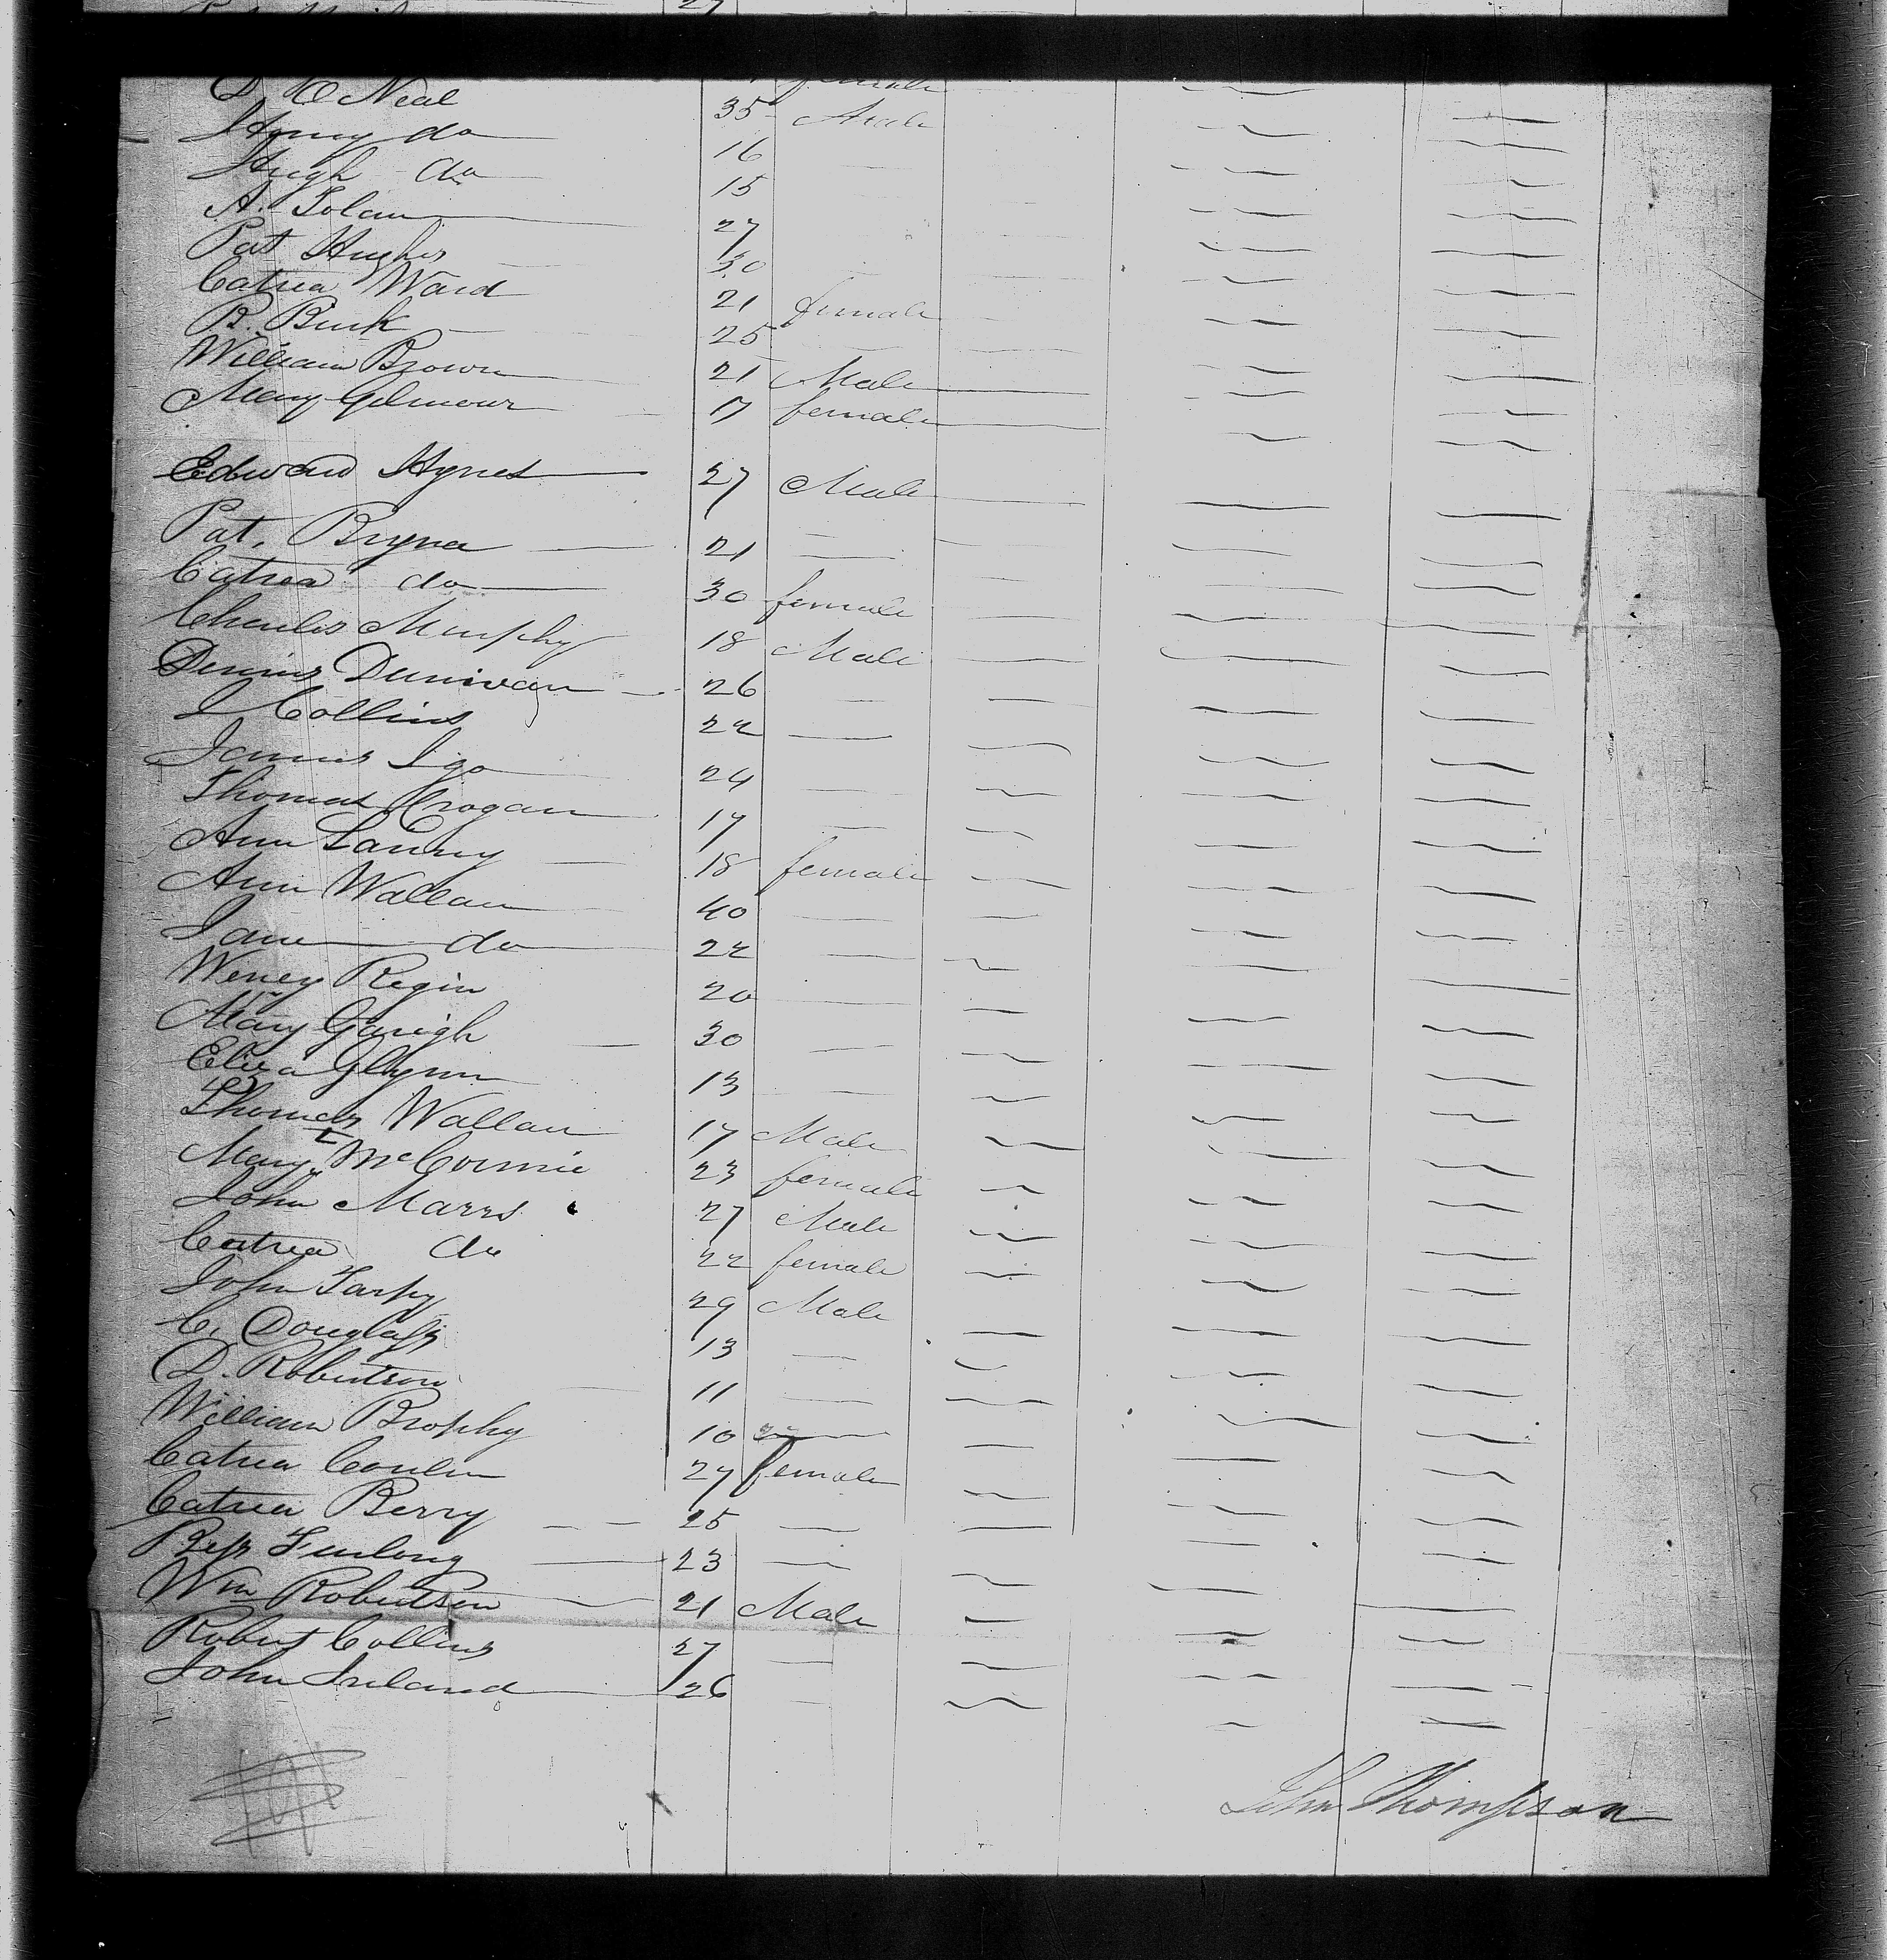 27
female
D. O Neal 35 Male
Henry do 16
Hugh do 15
A. Tolan 27
Pat Hughes 30
Catrea Ward 21 female
B. Burk 25
William Brown 21 Male
Mary Gilmour 17 female
Edward Hynes 27 Male
Pat. Bryna 21
Catrea do 30 female
Charles Murphy 18 Male
Dennis Dunivan 26
J Collins 22
James Igo 24
Thomas Crogan 17
Ann Lanny 18 female
Ann Wallace 40
Jane do 22
Weney Regin 20
Mary Garigh 30
Eliza Glynn 13
Thomas Wallace 17 Male
Mary McCormic 23 female
John Marrs 27 Male
Catrea do 22 female
John Tarpy 29 Male
C. Douglass 13
D. Robertson 11
William Brophy 10
Catrea Conlon 27 female
Catrea Berry 25
Bess Furlong 23
Wm Robertson 21 Male
Robert Collins 27
John Ireland 26
John Thompson